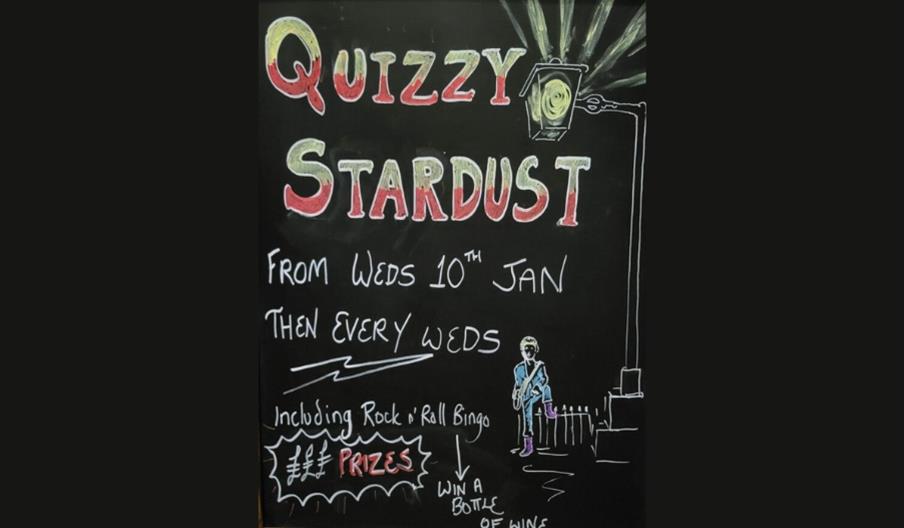 QUIZZY
STARDUST
FROM WEDS 10TH JAN
THEN EVERY WEDS
Including Rock n' Roll Bingo
£££ PRIZES
WIN A
BOTTLE
OF WINE